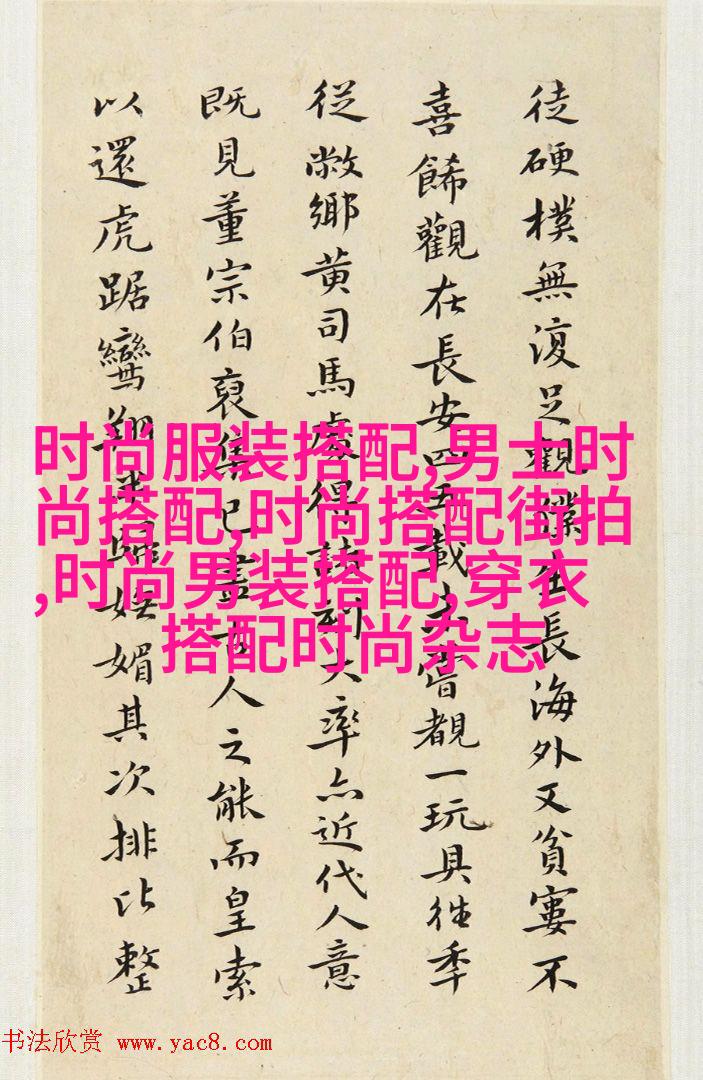 徒硬樸無復足觀璞生長海外又貧寠不
喜餙觀在長安四五載未嘗覩一玩具往季
從敝鄉黄司馬處得刻大率亦近代人意
既見董宗伯裒集已盡古人之能而皇索
以還虎踞鸞翔歸娬媚其次排比整
时尚服装搭配,男士时
尚搭配,时尚搭配街拍
,时尚男装搭配,穿衣
搭配时尚杂志
书法欣赏 www.yac8.com